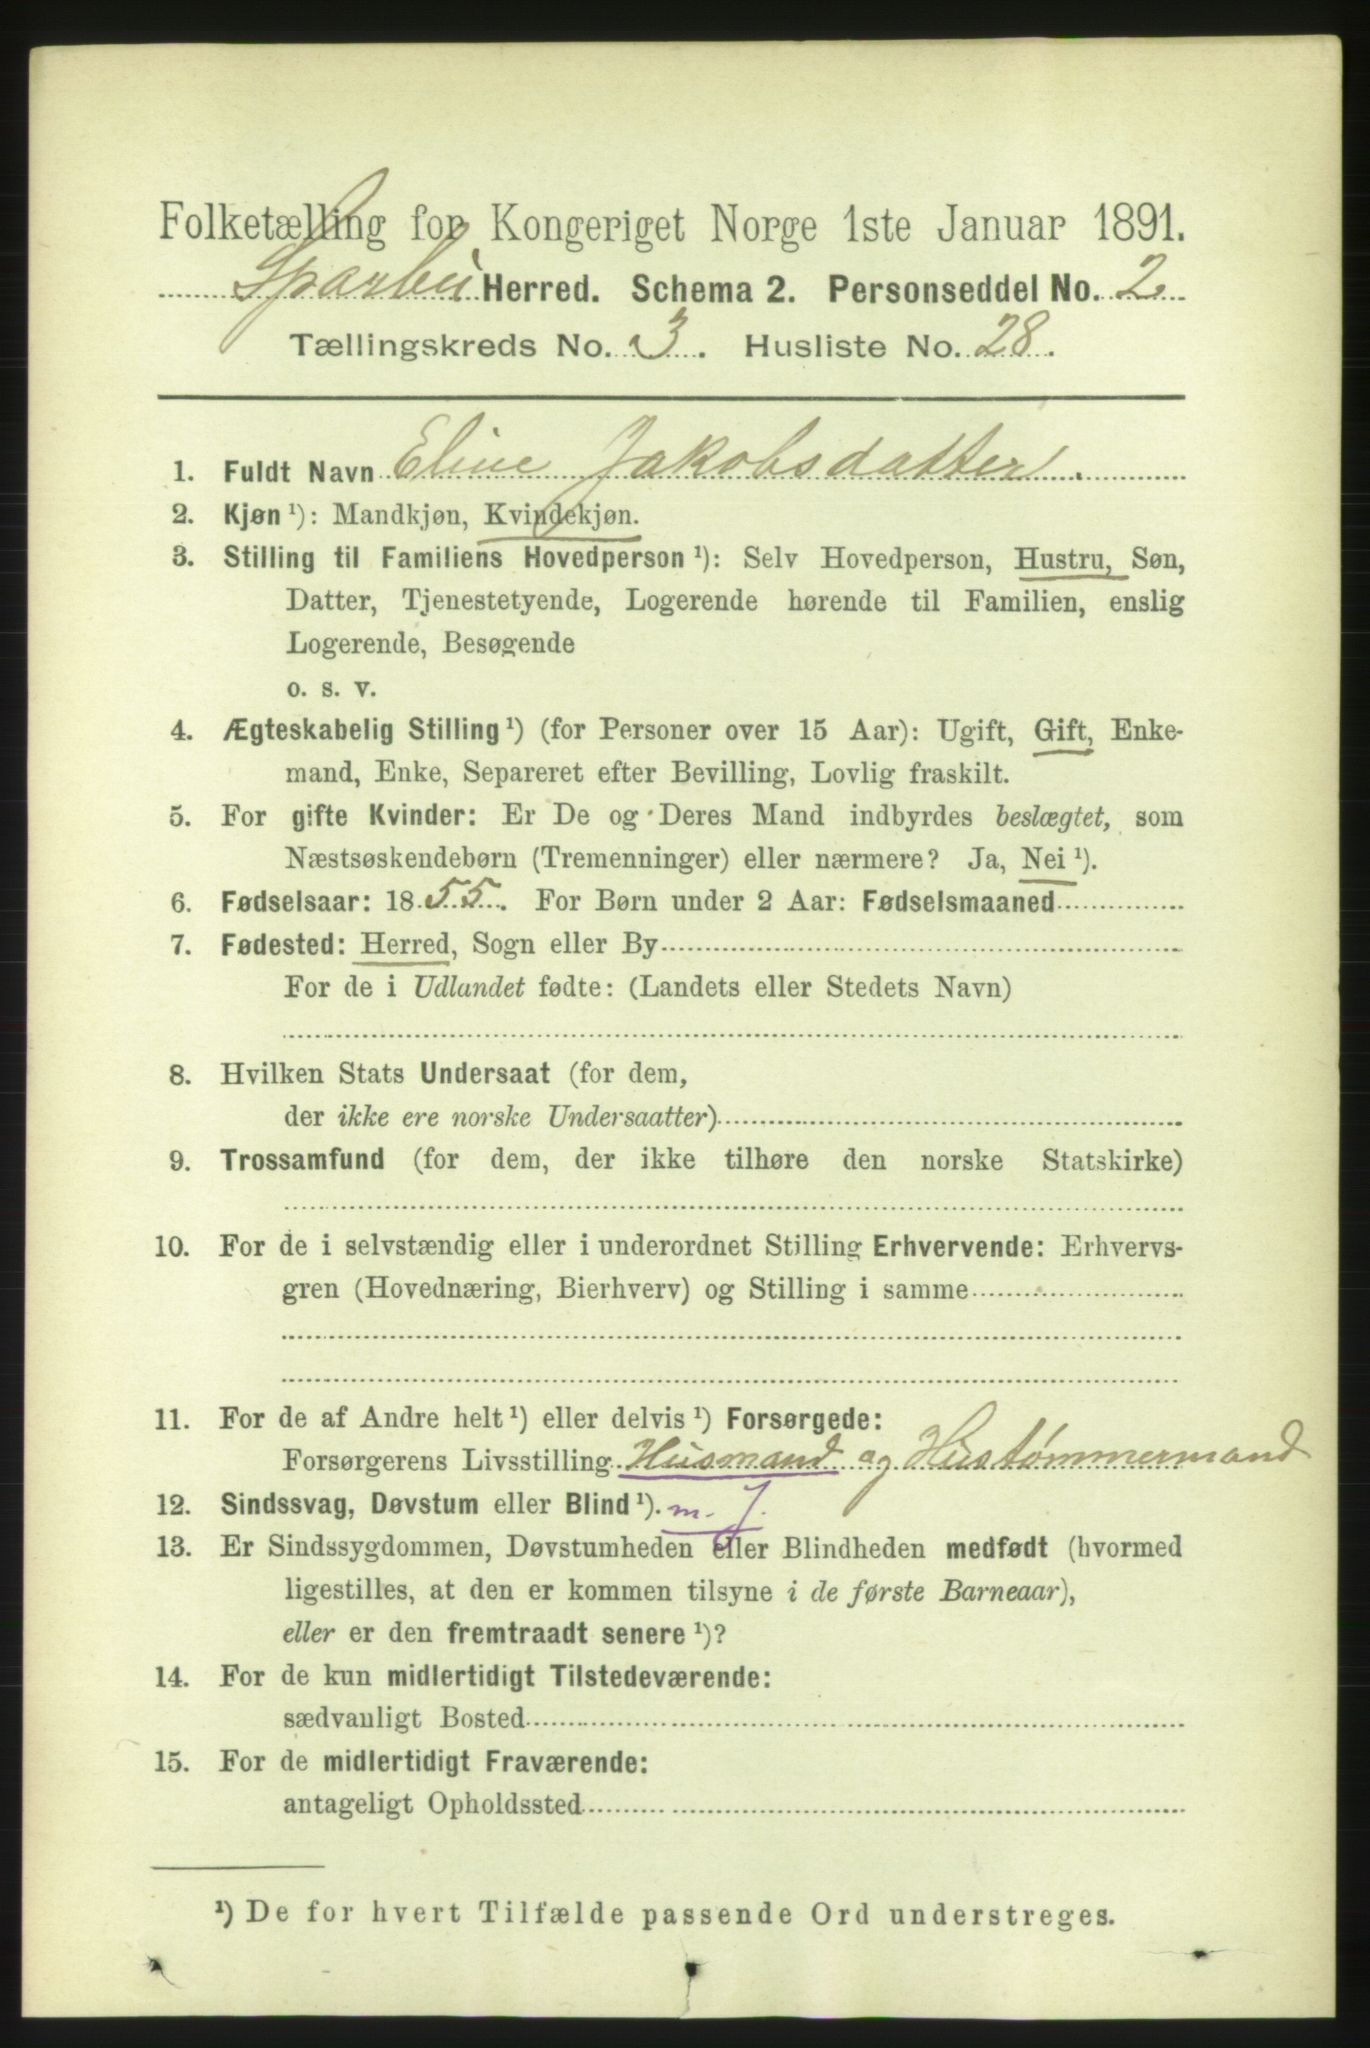 Folketælling for Kongeriget Norge 1ste Januar 1891.
Sparbu Herred. Schema 2. Personseddel No. 2
Tællingskreds No. 3. Husliste No. 28.
1. Fuldt Navn Eline Jakobsdatter.
2. Kjøn ¹): Mandkjøn, Kvindekjøn.
3. Stilling til Familiens Hovedperson ¹): Selv Hovedperson, Hustru, Søn,
Datter, Tjenestetyende, Logerende hørende til Familien, enslig
Logerende, Besøgende
o. s. v.
4. Ægteskabelig Stilling ¹) (for Personer over 15 Aar): Ugift, Gift, Enke-
mand, Enke, Separeret efter Bevilling, Lovlig fraskilt.
5. For gifte Kvinder: Er De og Deres Mand indbyrdes beslægtet, som
Næstsøskendebørn (Tremenninger) eller nærmere? Ja, Nei ¹).
6. Fødselsaar: 1855. For Børn under 2 Aar: Fødselsmaaned
7. Fødested: Herred, Sogn eller By
For de i Udlandet fødte: (Landets eller Stedets Navn)
8. Hvilken Stats Undersaat (for dem,
der ikke ere norske Undersaatter)
9. Trossamfund (for dem, der ikke tilhøre den norske Statskirke)
10. For de i selvstændig eller i underordnet Stilling Erhvervende: Erhvervs-
gren (Hovednæring, Bierhverv) og Stilling i samme
11. For de af Andre helt ¹) eller delvis ¹) Forsørgede:
Forsørgerens Livsstilling Husmand og Hustømmermand
12. Sindssvag, Døvstum eller Blind ¹). m. J.
13. Er Sindssygdommen, Døvstumheden eller Blindheden medfødt (hvormed
ligestilles, at den er kommen tilsyne i de første Barneaar),
eller er den fremtraadt senere ¹)?
14. For de kun midlertidigt Tilstedeværende:
sædvanligt Bosted
15. For de midlertidigt Fraværende:
antageligt Opholdssted
¹) De for hvert Tilfælde passende Ord understreges.